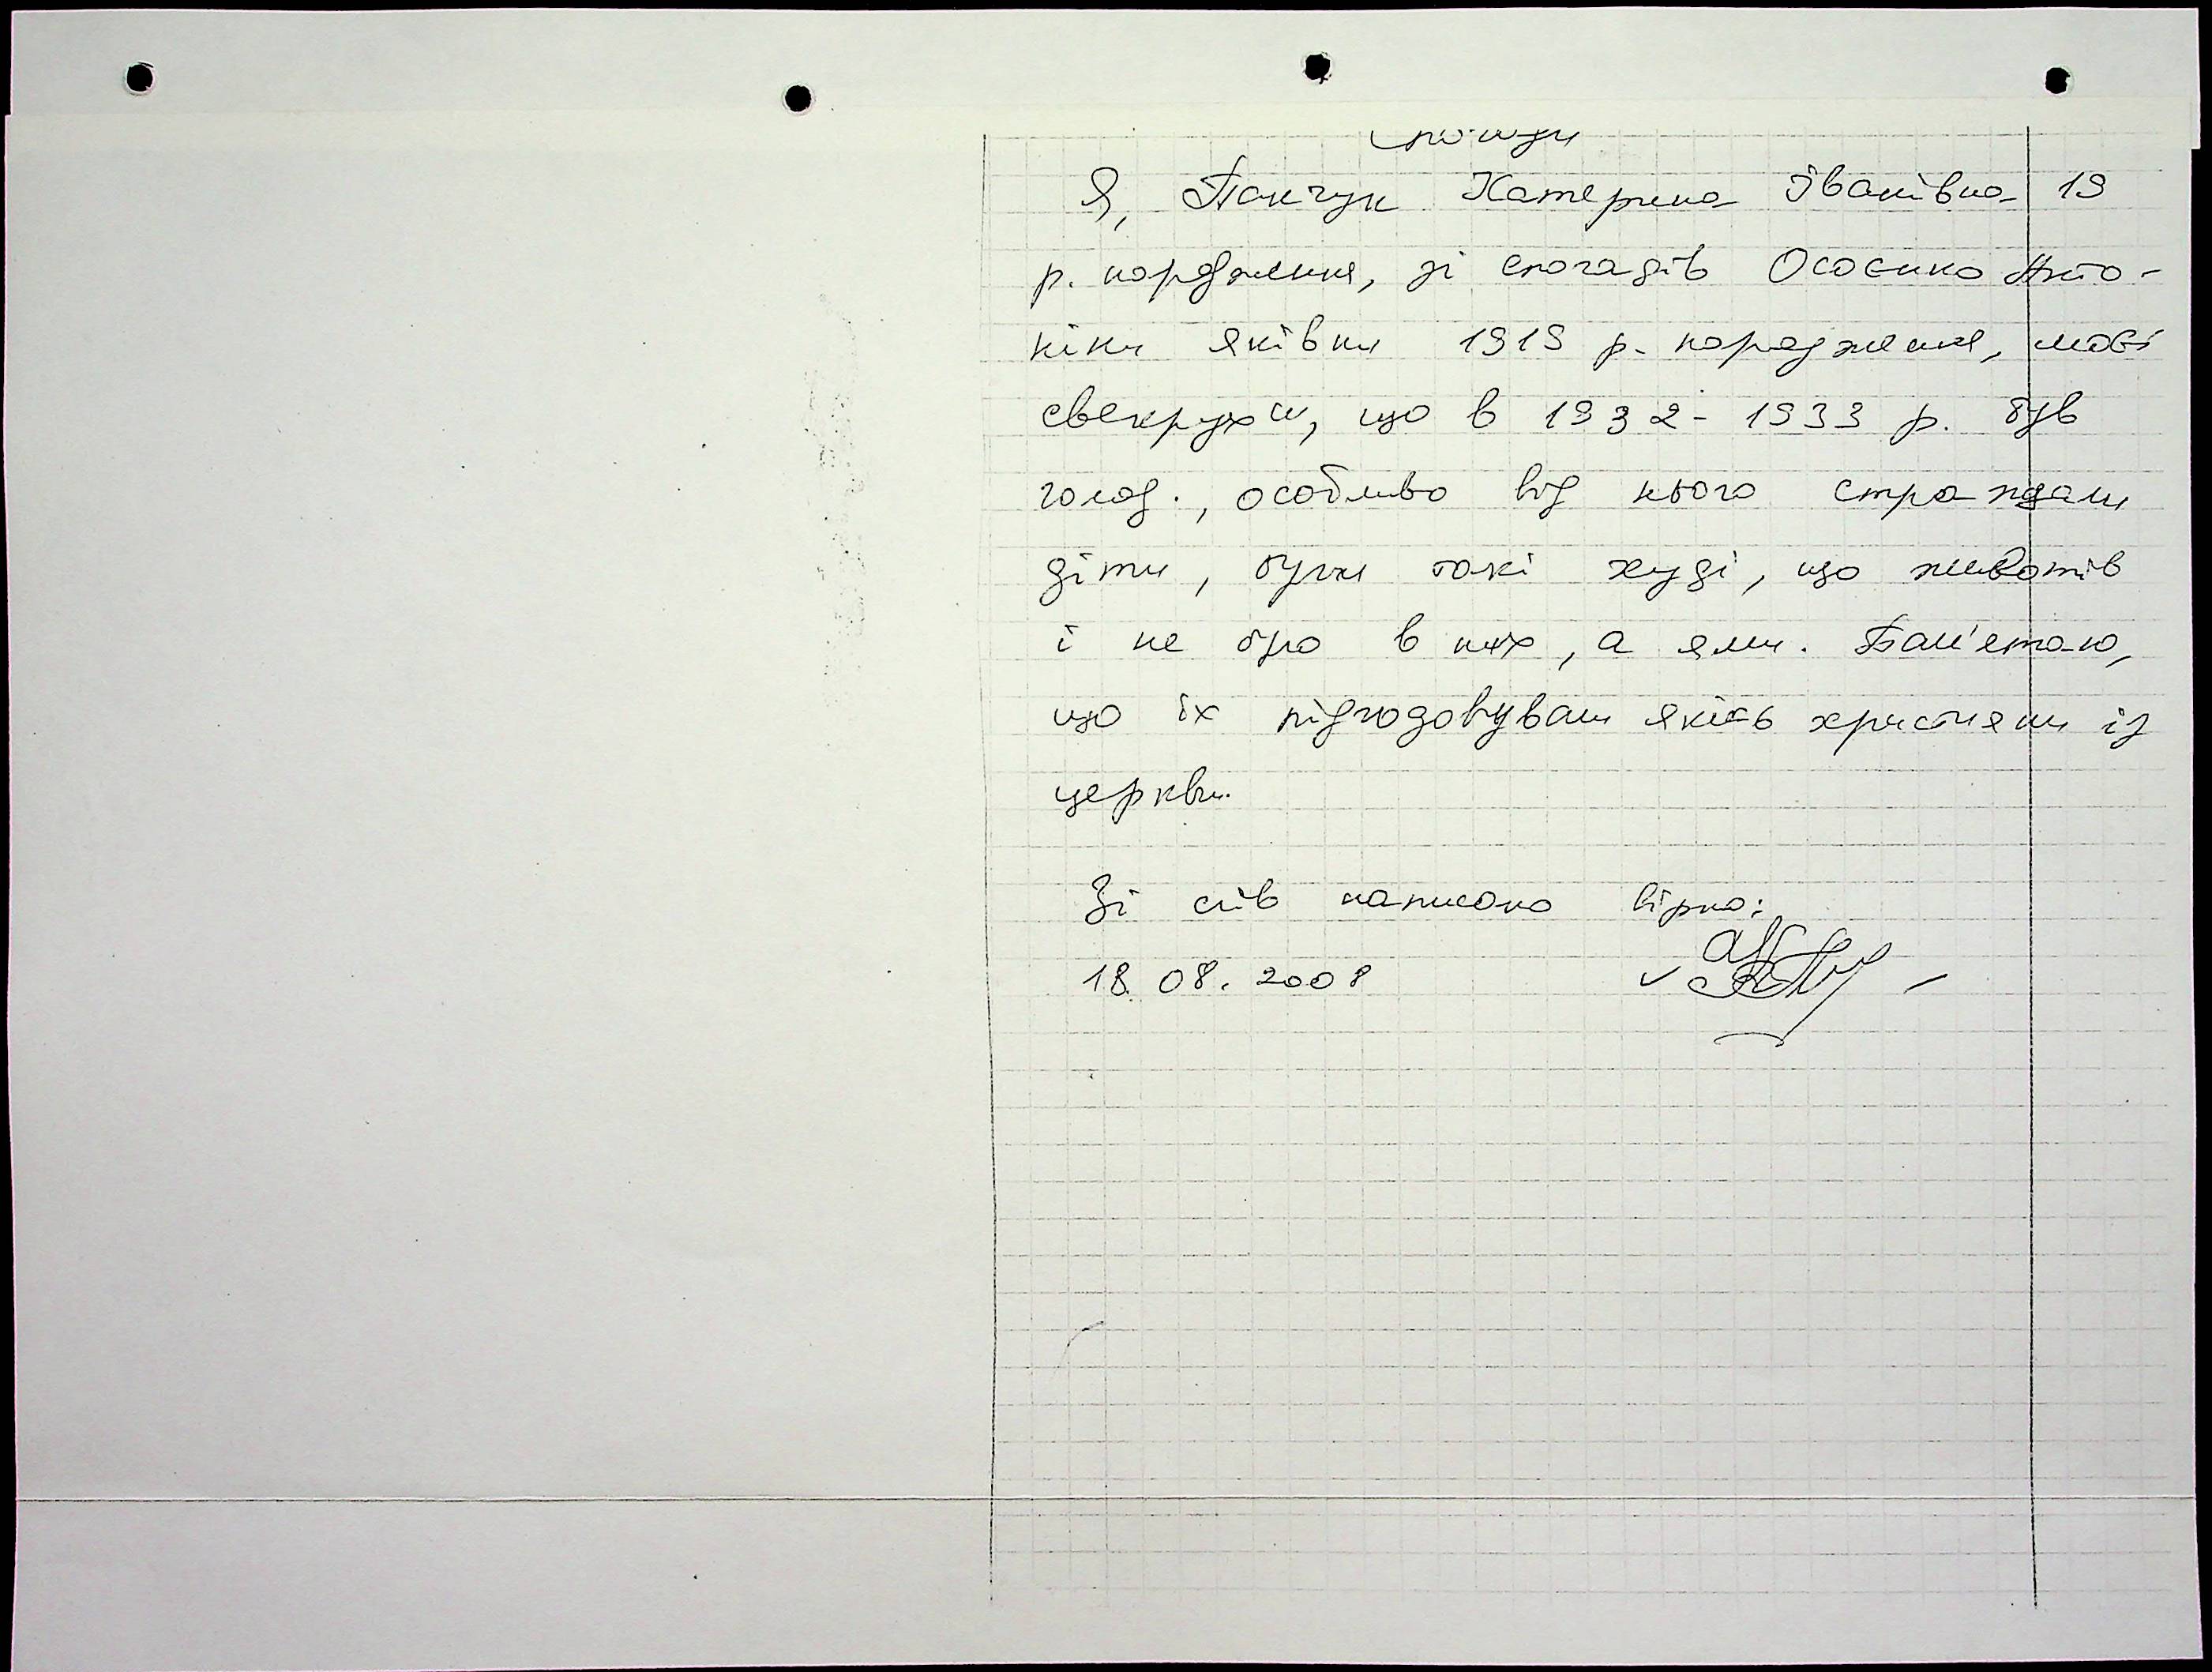 Спогади
Я, Панчук Катерина Іванівна 19
р. народження, зі спогадів Ососико Анто-
ніни Яківни 1919 р. народження, моєї
свекрухи, що в 1932-1933 р. був
голод., особливо від нього страждали
діти, були такі худі, що животів
і не було в них, а ями. Пам'ятаю,
що їх підгодовували якісь християни із
церкви.
Зі слів написано вірно:
18.08.2008